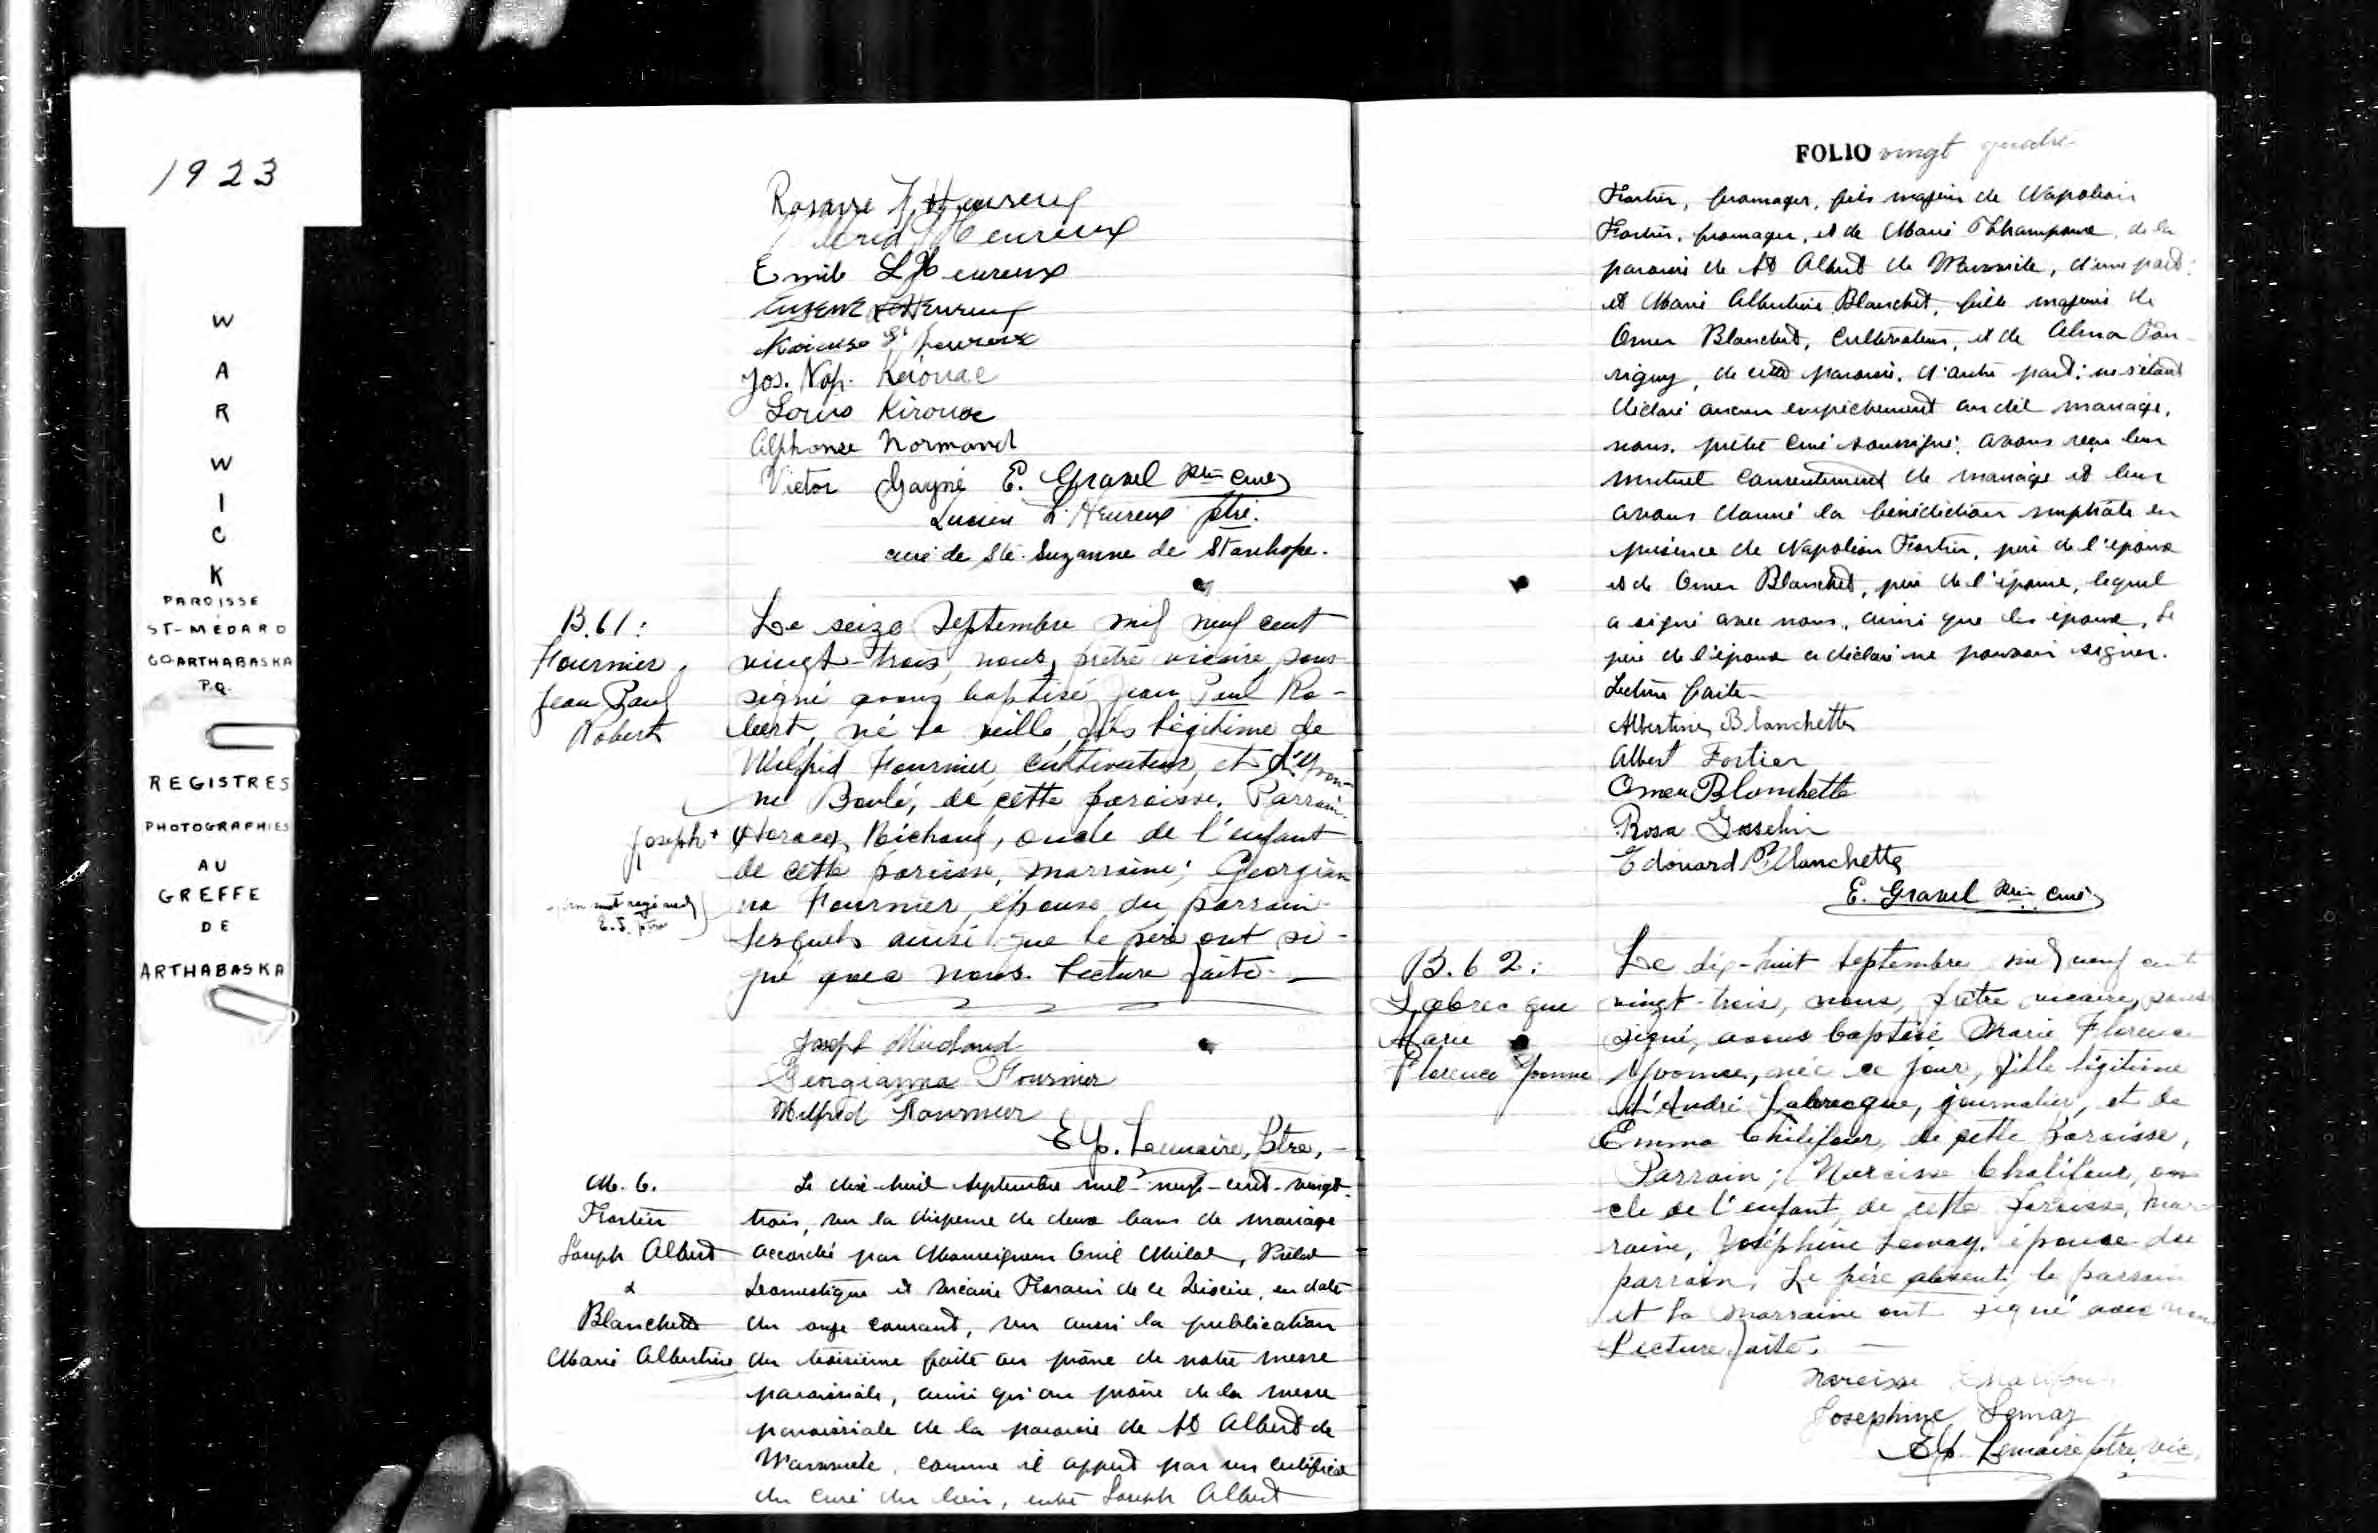 1923
W
A
R
W
I
C
K
PAROISSE
ST-MÉDARD
CO ARTHABASKA
P.Q.
REGISTRES
PHOTOGRAPHIES
AU
GREFFE
DE
ARTHABASKA
L'Heureux
L'Heureux
Emile L'Heureux
Eugène L'Heureux
L'heureux
Jos. Nap. Kérouac
Louis Kirouac
Alphonse Normand
Victor Gagné E. Gravel Ptre Curé
Lucien L'Heureux ptre.
curé de Ste. Suzanne de Stanhope.
B.61:
Fournier,
Jean Paul
Robert
Le seize Septembre mil neuf cent
vingt-trois, nous, prêtre vicaire, sous-
signé avons baptisé Jean Paul Ro-
bert, né la veille, fils légitime de
Wilfrid Fournier, cultivateur, et d'Yvon-
ne Boulé, de cette paroisse. Parrain:
Joseph + Michaud, oncle de l'enfant
de cette paroisse, marraine; Georgian-
na Fournier, épouse du parrain
lesquels ainsi que le père ont si-
gné avec nous. Lecture faite.
Joseph Michaud
Georgianna Fournier
Wilfrid Fournier
Lemaire, Ptre,
M. 6.
Fortier
Joseph Albert
&
Blanchette
Marie Albertine
Le dix-huit Septembre mil-neuf-cent-vingt-
trois, vu la dispense de deux bans de mariage
accordée par Monseigneur Milot, Prélat
Domestique et Vicaire Forain de ce Diocèse, en date
du onze courant, vu aussi la publication
du troisième faite au prône de notre messe
paroissiale, ainsi qu'au prône de la messe
paroissiale de la paroisse de St Albert de
Warwick, comme il appert par un certificat
du curé du lieu, entre Joseph Albert
FOLIO vingt quatre
Fortier, fromager, fils majeur de Napoléon
Fortier, fromager, et de Marie Champoux, de la
paroisse de St Albert de Warwick, d'une part;
et Marie Albertine Blanchet, fille majeure de
Omer Blanchet, cultivateur, et de Alma
de cette paroisse, d'autre part; ne s'étant
déclaré aucun empêchement au dit mariage,
nous, prêtre curé soussigné, avons reçu leur
mutuel consentement de mariage et leur
avons donné la bénédiction nuptiale en
présence de Napoléon Fortier, père de l'époux
et de Omer Blanchet, père de l'épouse, lequel
a signé avec nous, ainsi que les époux. Le
père de l'époux a déclaré ne pouvoir signer.
Lecture faite
Albertine Blanchette
Albert Fortier
Omer Blanchette
Rosa Gosselin
Edouard Blanchette
E. Gravel Ptre Curé
B.62:
Labrecque
Marie
Florence Yvonne
Le dix-huit septembre mil neuf cent
vingt-trois, nous, prêtre vicaire, sous-
signé, avons baptisé Marie Florence
Yvonne, née ce jour, fille légitime
d'André Labrecque, journalier, et de
Emma Chalifour, de cette paroisse,
Parrain; Narcisse Chalifour, on-
cle de l'enfant, de cette paroisse, mar-
raine, Joséphine Lemay, épouse du
parrain. Le père absent, le parrain
et la marraine ont signé avec nous
Lecture faite.
Narcisse
Josephine Lemay
Lemaire ptre, vic.